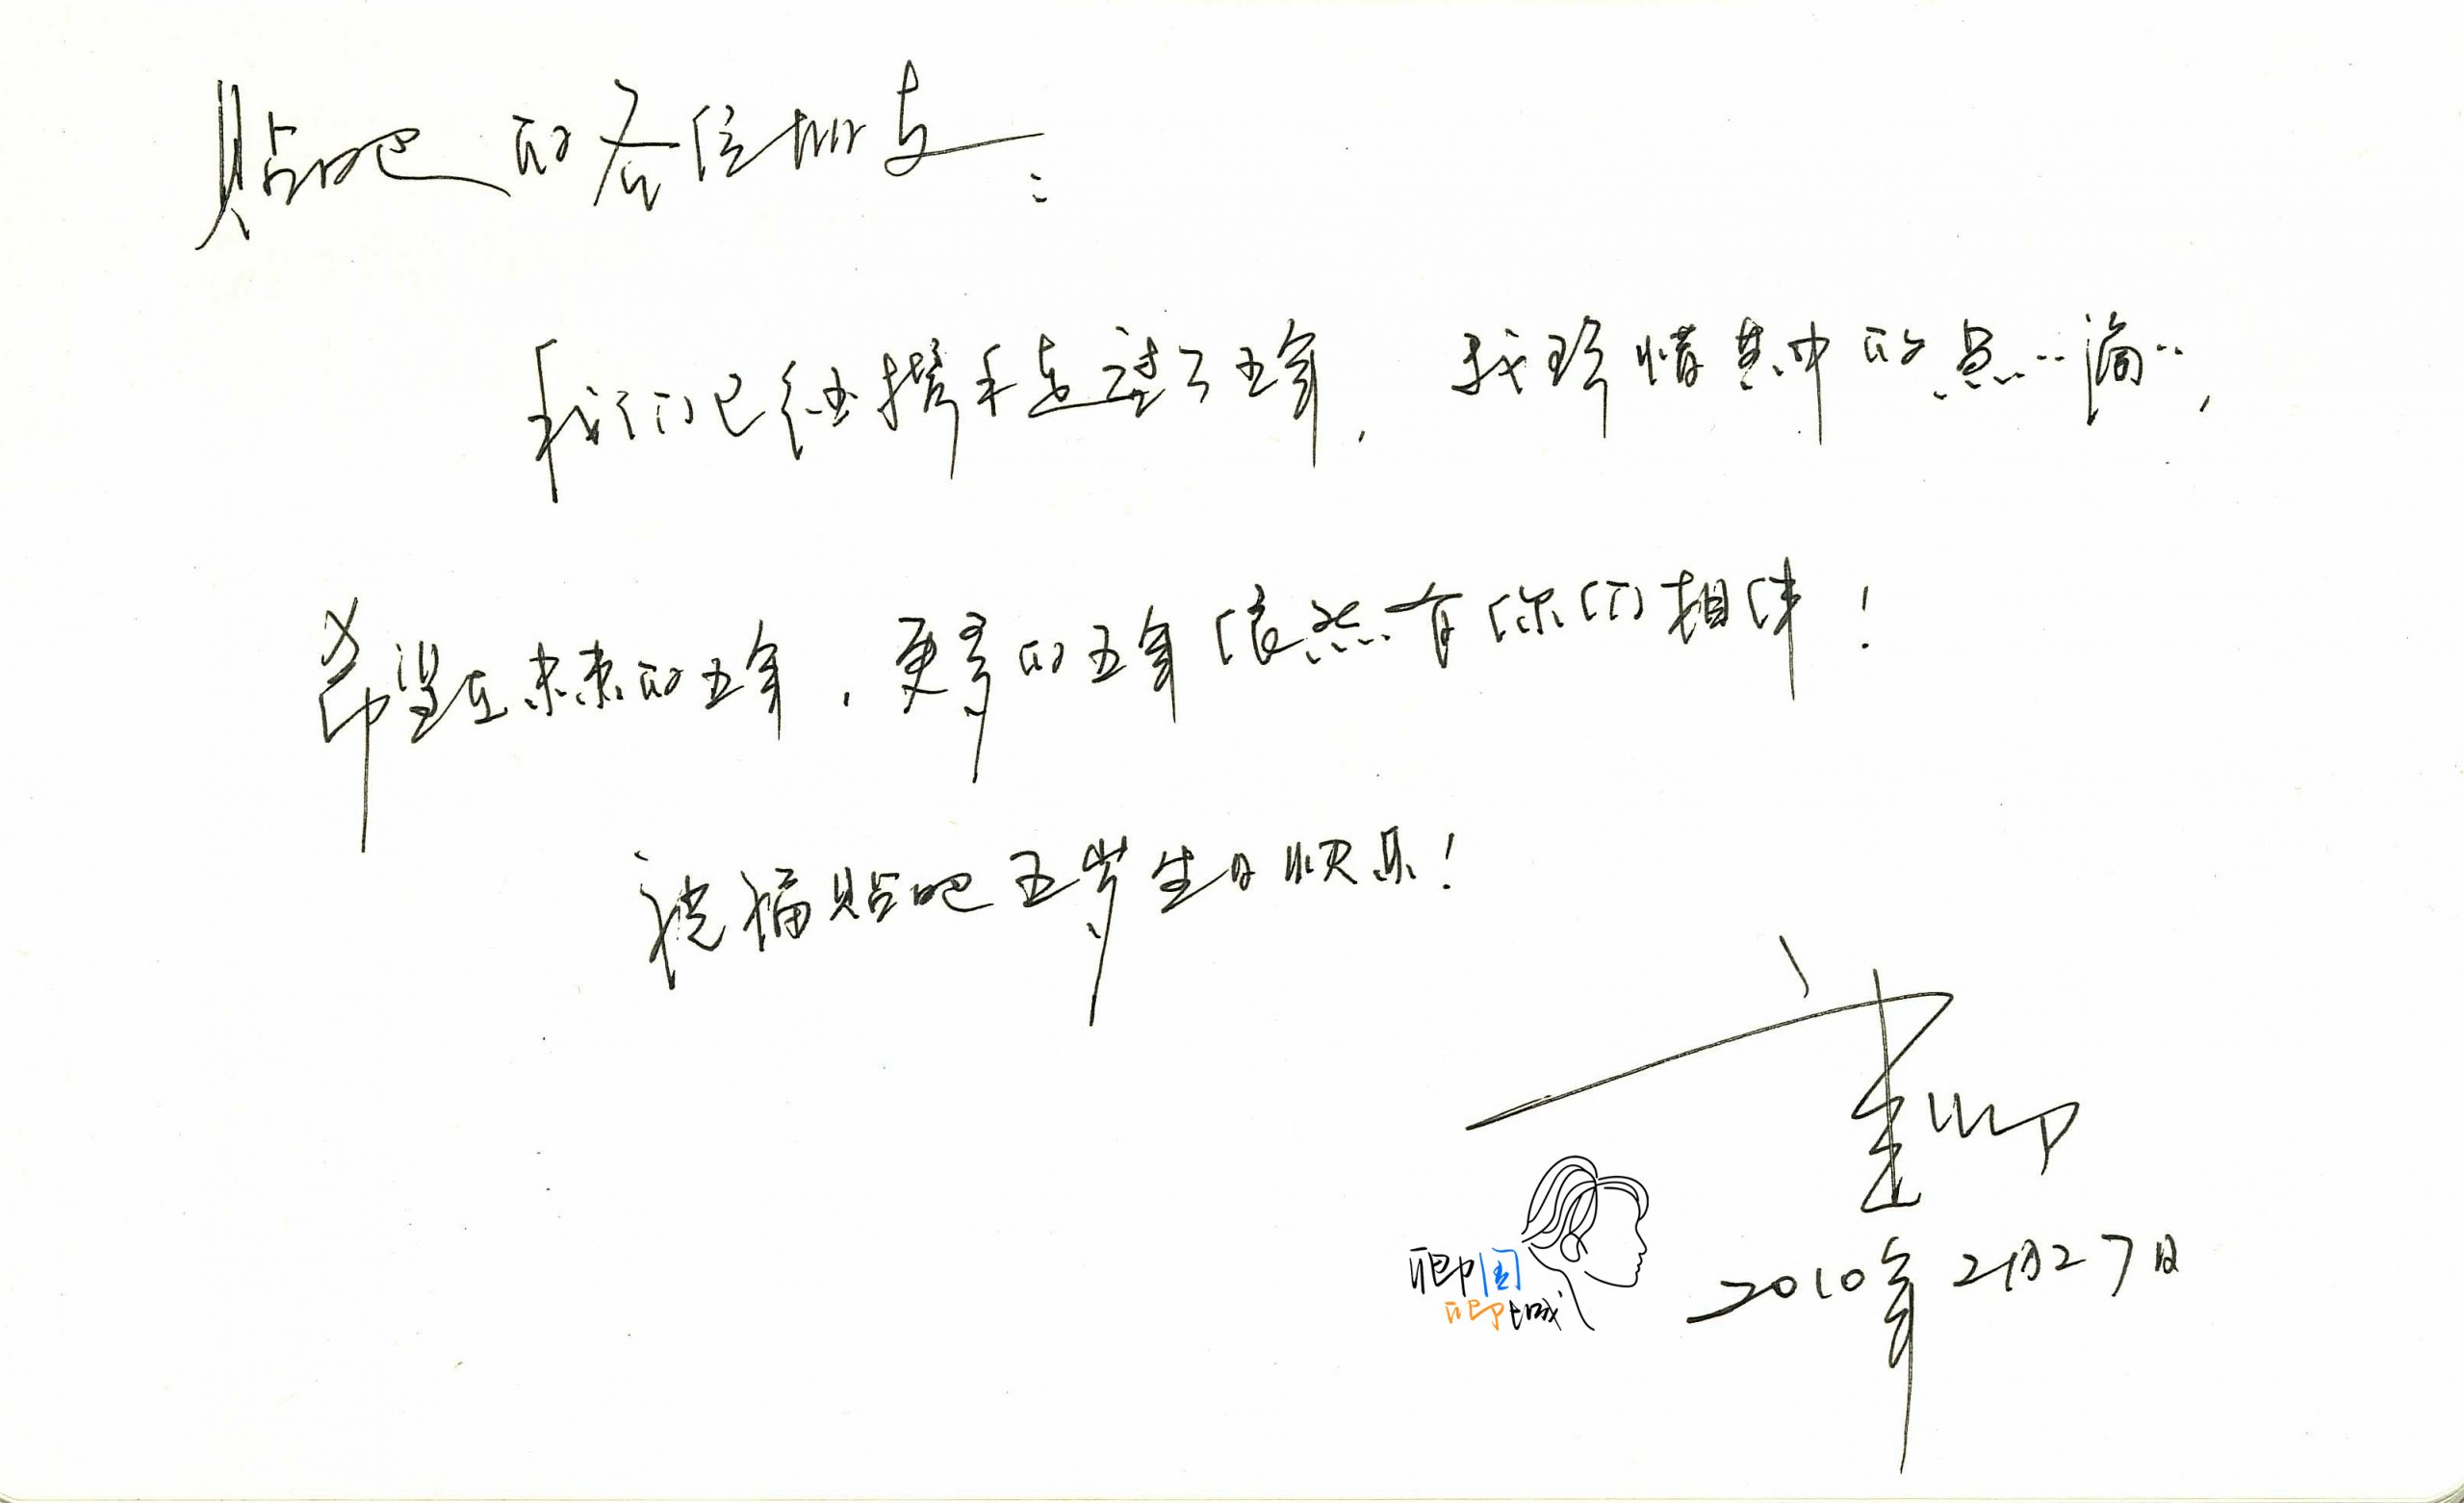 贴吧的各位朋友:
我们已经携手走过了五年,我珍惜其中的点点滴滴,
希望在未来的五年,更多的五年依然有你们相伴!
祝福贴吧五岁生日快乐!
2010年2月27日